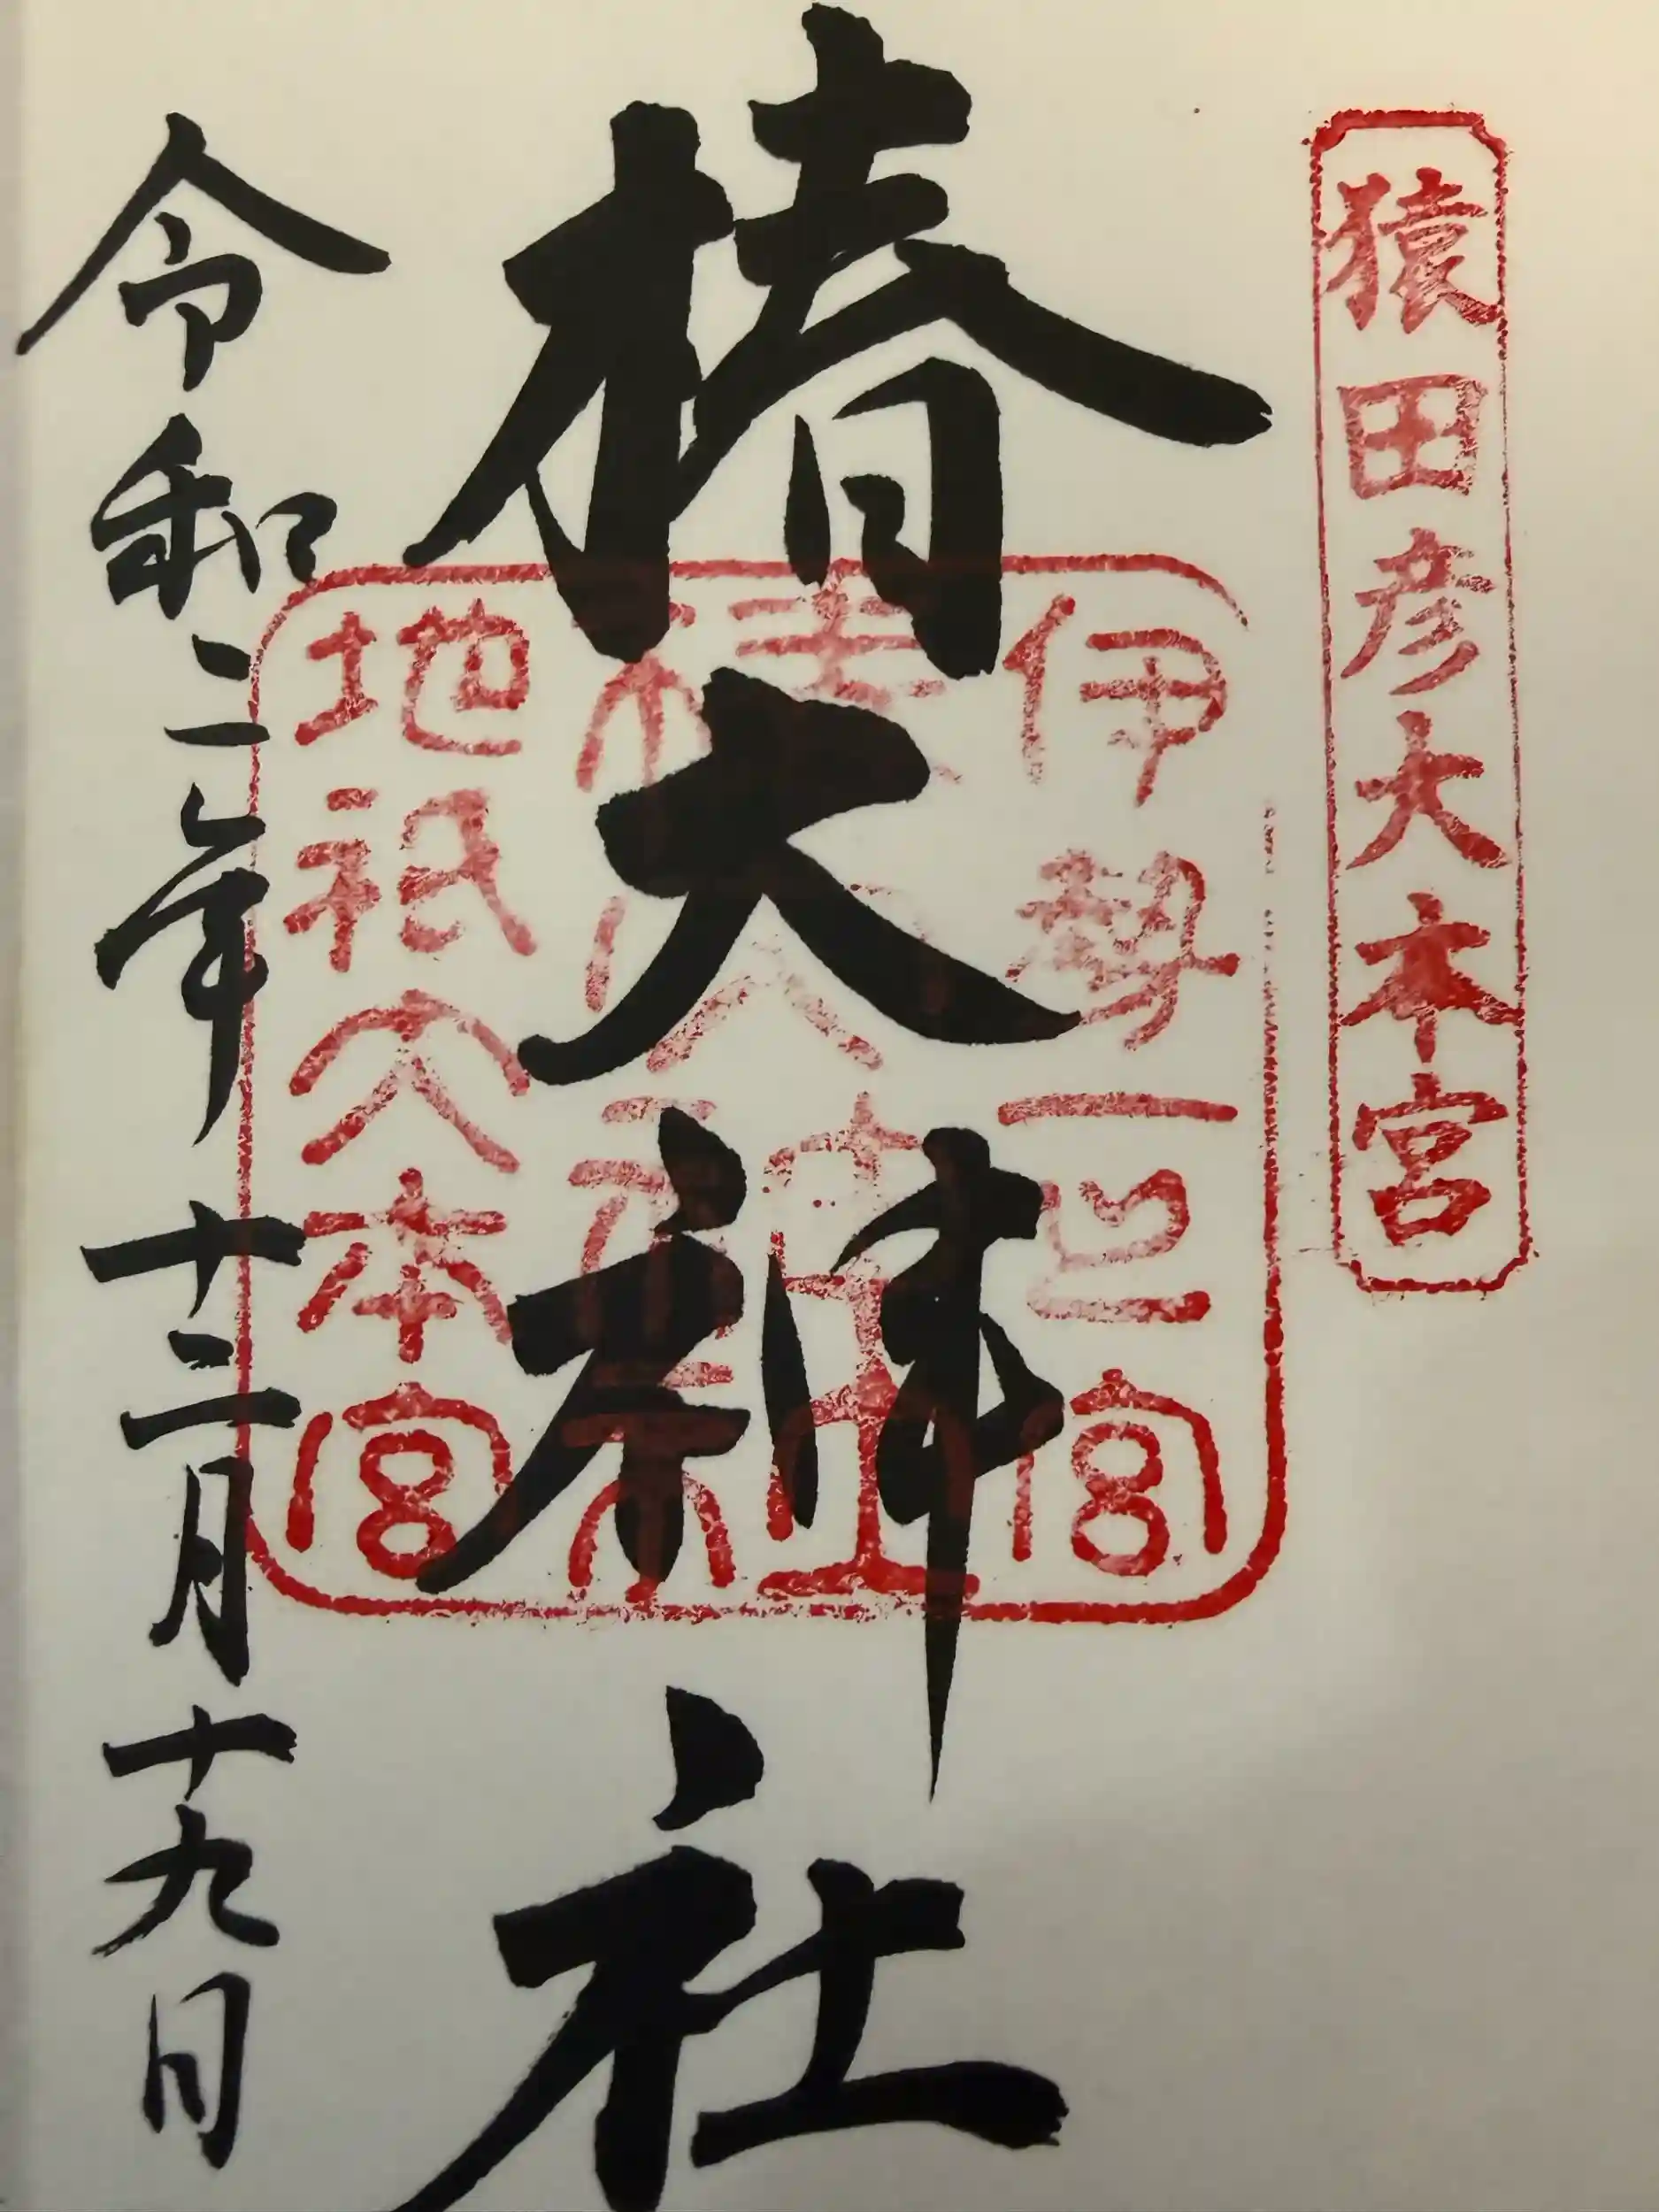 猿田彦大本宮
椿大神社
伊勢一之宮
椿大神社
地祇大本宮
令和二年十二月十九日